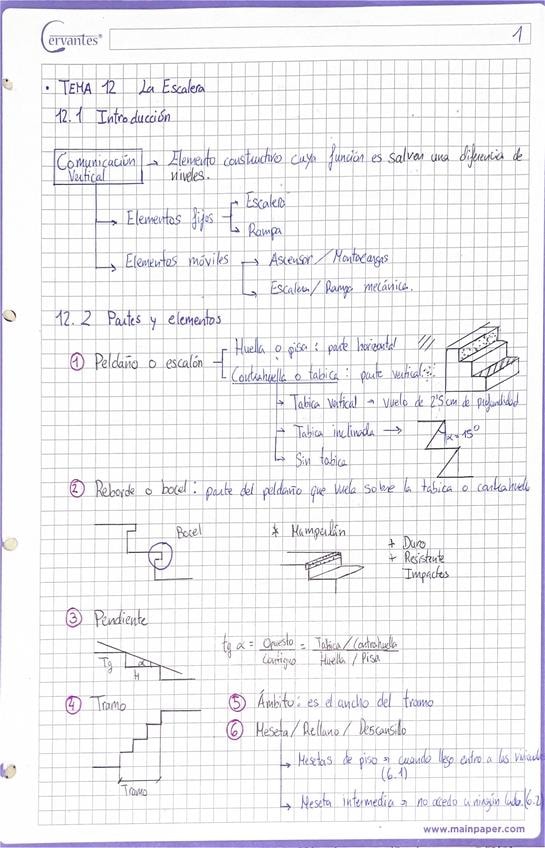 Cervantes®
1
• TEMA 12 La Escalera
12.1 Introducción
Comunicación Vertical → Elemento constructivo cuya función es salvar una diferencia de
niveles.
→ Elementos fijos
→ Escalera
→ Rampa
→ Elementos móviles
→ Ascensor / Montacargas
→ Escalera / Rampa mecánica.
12.2 Partes y elementos
① Peldaño o escalón
Huella o pisa: parte horizontal
Contrahuella o tabica: parte vertical
→ Tabica vertical → vuelo de 2'5 cm de profundidad
→ Tabica inclinada → α = 15°
→ Sin tabica
② Reborde o bocel: parte del peldaño que vuela sobre la tabica o contrahuella
Bocel
* Mamperlán
+ Duro
+ Resistente
Impactos
③ Pendiente
tg α = Opuesto / Contiguo = Tabica / Contrahuella / Huella / Pisa
Tg α
H
④ Tramo
Tramo
⑤ Ámbito: es el ancho del tramo
⑥ Meseta / Rellano / Descansillo
→ Mesetas de piso → cuando llego entro a las
(6.1)
→ Meseta intermedia → no accedo a ningún lado. (6.2)
www.mainpaper.com